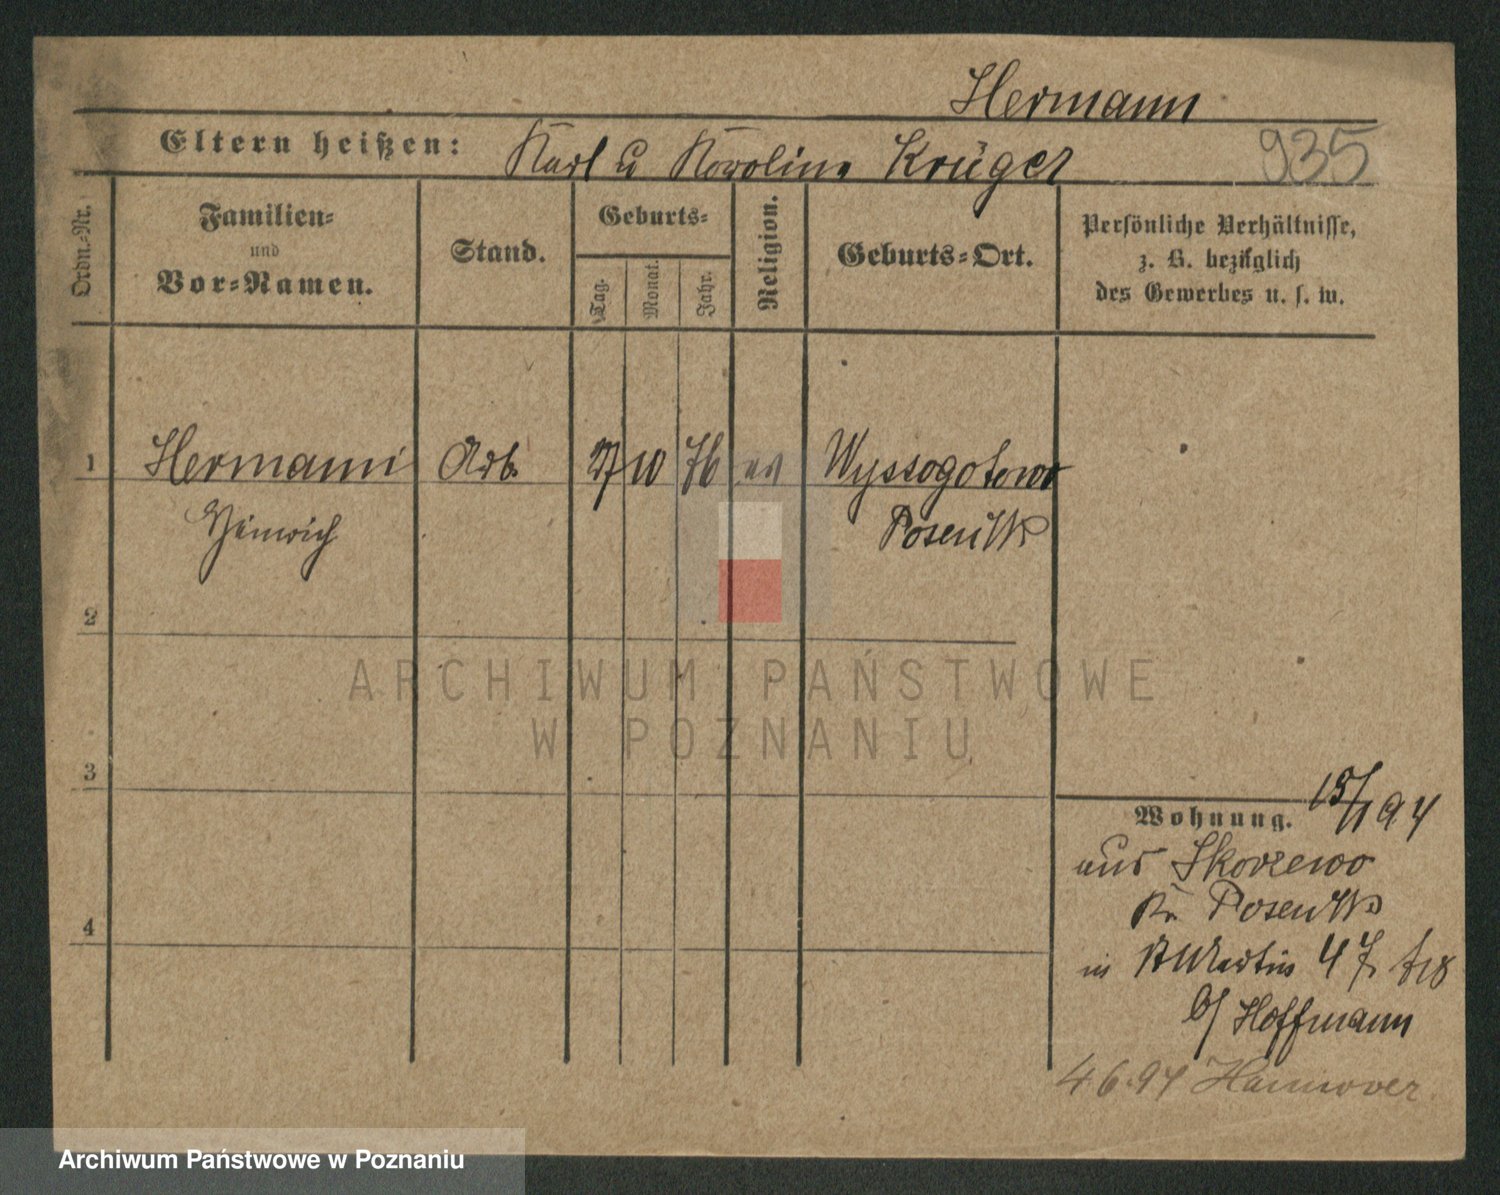 Hermann
Eltern heißen: Karl u Karoline Krüger 935
Ordn.-Nr.
Familien-
und
Vor-Namen.
Stand.
Geburts-
Tag.
Monat.
Jahr.
Religion.
Geburts-Ort.
Persönliche Verhältnisse,
z. B. bezüglich
des Gewerbes u. s. w.
1 Hermann Arb. 27 10 76 ev Wyssogotowo
Heinrich Posen W
2
ARCHIWUM PAŃSTWOWE
W POZNANIU
3
Wohnung. 15/1 94
aus Skorzewo
Kr Posen W
in St Martin 47
b/ Hoffmann
4
4.6.94 Hannover.
Archiwum Państwowe w Poznaniu